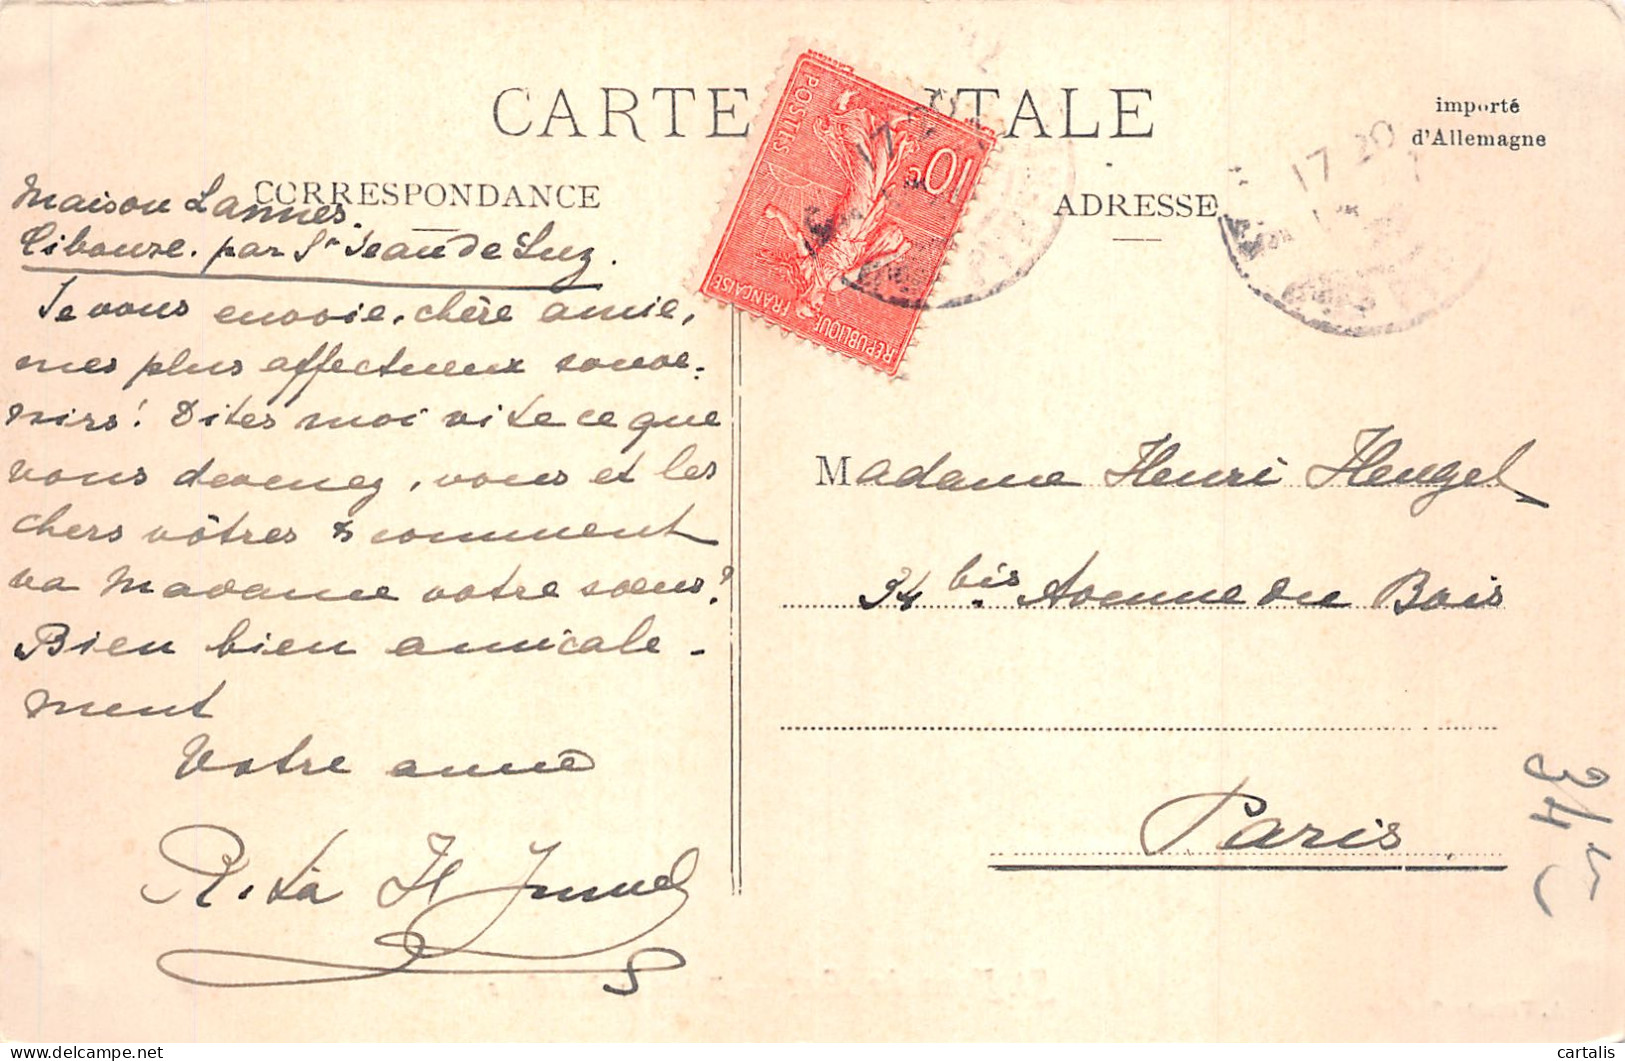 CARTE POSTALE
importé
d'Allemagne
CORRESPONDANCE
ADRESSE
POSTES
10c
REPUBLIQUE FRANÇAISE
17 20
17 20
Maison Lannes.
Ciboure. par St Jean de Luz.
Je vous envoie, chère amie,
mes plus affectueux souve-
nirs! Dites moi vite ce que
vous devenez, vous et les
chers vôtres & comment
va Madame votre sœur?
Bien bien amicale-
ment
Votre amie
Rita H
Madame Henri Heugel
34 bis Avenue du Bois
Paris
345
cartalis
delcampe.net